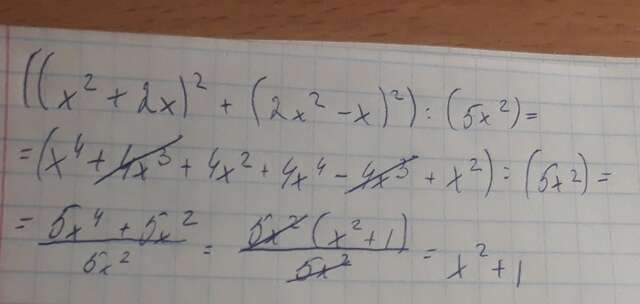 ((x² + 2x)² + (2x² - x)²) : (5x²) =
= (x⁴ + 4x³ + 4x² + 4x⁴ - 4x³ + x²) : (5x²) =
= 5x⁴ + 5x² / 5x² = 5x² (x² + 1) / 5x² = x² + 1